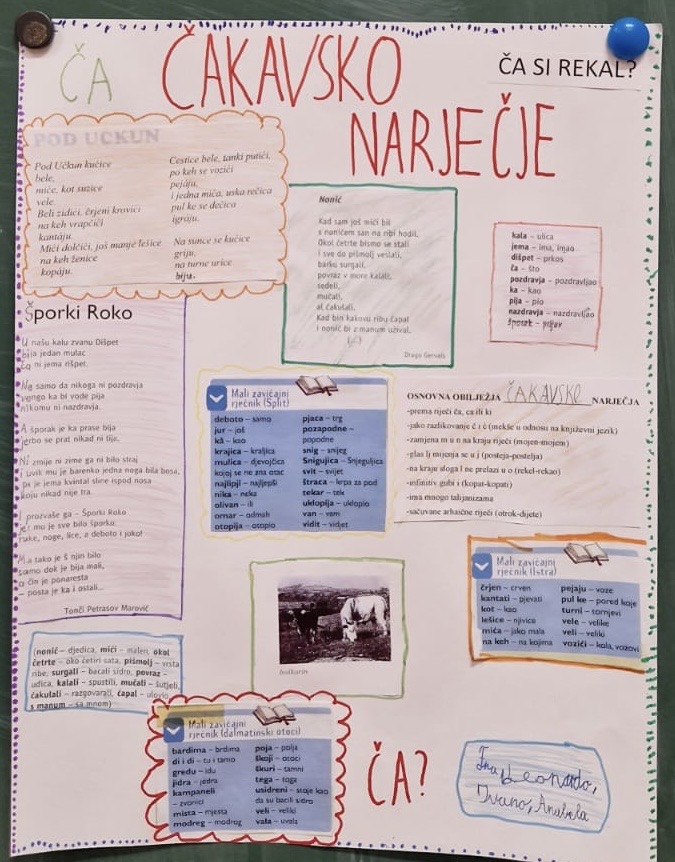 ČA
ČAKAVSKO
NARJEČJE
ČA SI REKAL?
POD UČKUN
Pod Učkun kućice
bele,
miće, kot suzice
vele.
Beli zidići, črjeni krovići
na keh vrapčići
kantaju.
Mići dolčići, još manje lešice
na keh ženice
kopaju.
Cestice bele, tanki putići,
po keh se vozići
pejaju,
i jedna mića, uska rečica
pul ke se dečica
igraju.
Na sunce se kućice
griju,
na turne urice
biju.
Nonić
Kad sam još mići bil
s nonićem san na ribi hodil.
Okol četrte bismo se stali
i sve do pišmolj veslali,
barku surgali,
povraz v more kalali,
sedeli,
mučali,
al čakulali.
Kad bin kakovu ribu čapal
i nonić bi z manum užival.
(...)
Drago Gervais
kala – ulica
jema – ima, imao
dišpet – prkos
ča – što
pozdravja – pozdravljao
ka – kao
pija – pio
nazdravja – nazdravljao
šporak – prljav
Šporki Roko
U našu kalu zvanu Dišpet
bija jedan mulac
ča ni jema rišpet.
Ne samo da nikoga ni pozdravja
vengo ka bi vode pija
nikomu ni nazdravja.
A šporak je ka prase bija
jerbo se prat nikad ni tija.
Ni zmije ni zime ga ni bilo straj
i uvik mu je barenko jedna noga bila bosa,
pa je jema kvintal sline ispod nosa
koju nikad nije tra.
I prozvaše ga – Šporki Roko
jer mu je sve bilo šporko:
ruke, noge, lice, a deboto i joko!
Ma tako je š njin bilo
samo dok je bija mali,
a čin je ponaresta
– posta je ka i ostali...
Tonči Petrasov Marović
Mali zavičajni
rječnik (Split)
deboto – samo
jur – još
kâ – kao
krajica – kraljica
mulica – djevojčica
kojoj se ne zna otac
najlipji – najljepši
nika – neka
olivan – ili
omar – odmah
otopija – otopio
pjaca – trg
pozapodne –
popodne
snig – snijeg
Snigujica – Snjeguljica
svit – svijet
štraca – krpa za pod
tekar – tek
uklopija – uklopio
van – vam
vidit – vidjet
OSNOVNA OBILJEŽJA ČAKAVSKO NARJEČJA
-prema riječi ča, ca ili ki
-jako razlikovanje č i ć (mekše u odnosu na književni jezik)
-zamjena m u n na kraju riječi (mojem-mojen)
-glas lj mijenja se u j (postelja-posteja)
-na kraju sloga l ne prelazi u o (rekel-rekao)
-infinitiv gubi i (kopat-kopati)
-ima mnogo talijanizama
-sačuvane arhaične riječi (otrok-dijete)
Mali zavičajni
rječnik (Istra)
črjen – crven
kantati – pjevati
kot – kao
lešice – njivice
mića – jako mala
na keh – na kojima
pejaju – voze
pul ke – pored koje
turni – tornjevi
vele – velike
veli – veliki
vozići – kola, vozovi
Boškarin
(nonić – djedica, mići – malen, okol
četrte – oko četiri sata, pišmolj – vrsta
ribe, surgali – bacali sidro, povraz –
udica, kalali – spustili, mučali – šutjeli,
čakulali – razgovarali, čapal – ulovio,
s manum – sa mnom)
Mali zavičajni
rječnik (dalmatinski otoci)
bardima – brdima
di i di – tu i tamo
gredu – idu
jidra – jedra
kampaneli
– zvonici
mista – mjesta
modreg – modrog
poja – polja
škoji – otoci
škuri – tamni
tega – toga
usidreni – stoje kao
da su bacili sidro
veli – veliki
vala – uvala
ČA?
Ina, Leonardo,
Ivano, Anabela